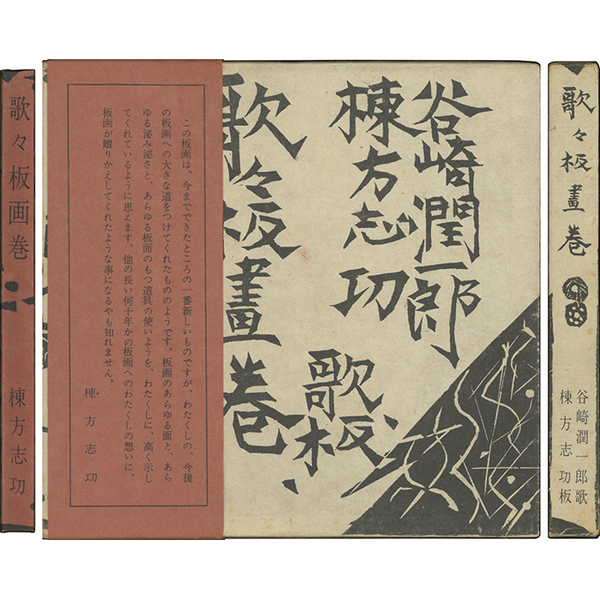 歌々板畫巻
谷崎潤一郎歌
棟方志功板
谷崎潤一郎
棟方志功
歌板、
歌々板畫巻
この板画は、今までできたところの一番新しいものですが、わたくしの、今後
の板画への大きな道をつけてくれたもののようです。板画のあらゆる面と、あら
ゆる泌み泌さと、あらゆる板面のもつ道具の使いようを、わたくしに、高く示し
てくれているように思えます。他の長い何十年かの板画へのわたくしの想いに、
板画が贈りかえしてくれたような事になるやも知れません。
棟方志功
歌々板画巻
棟方志功